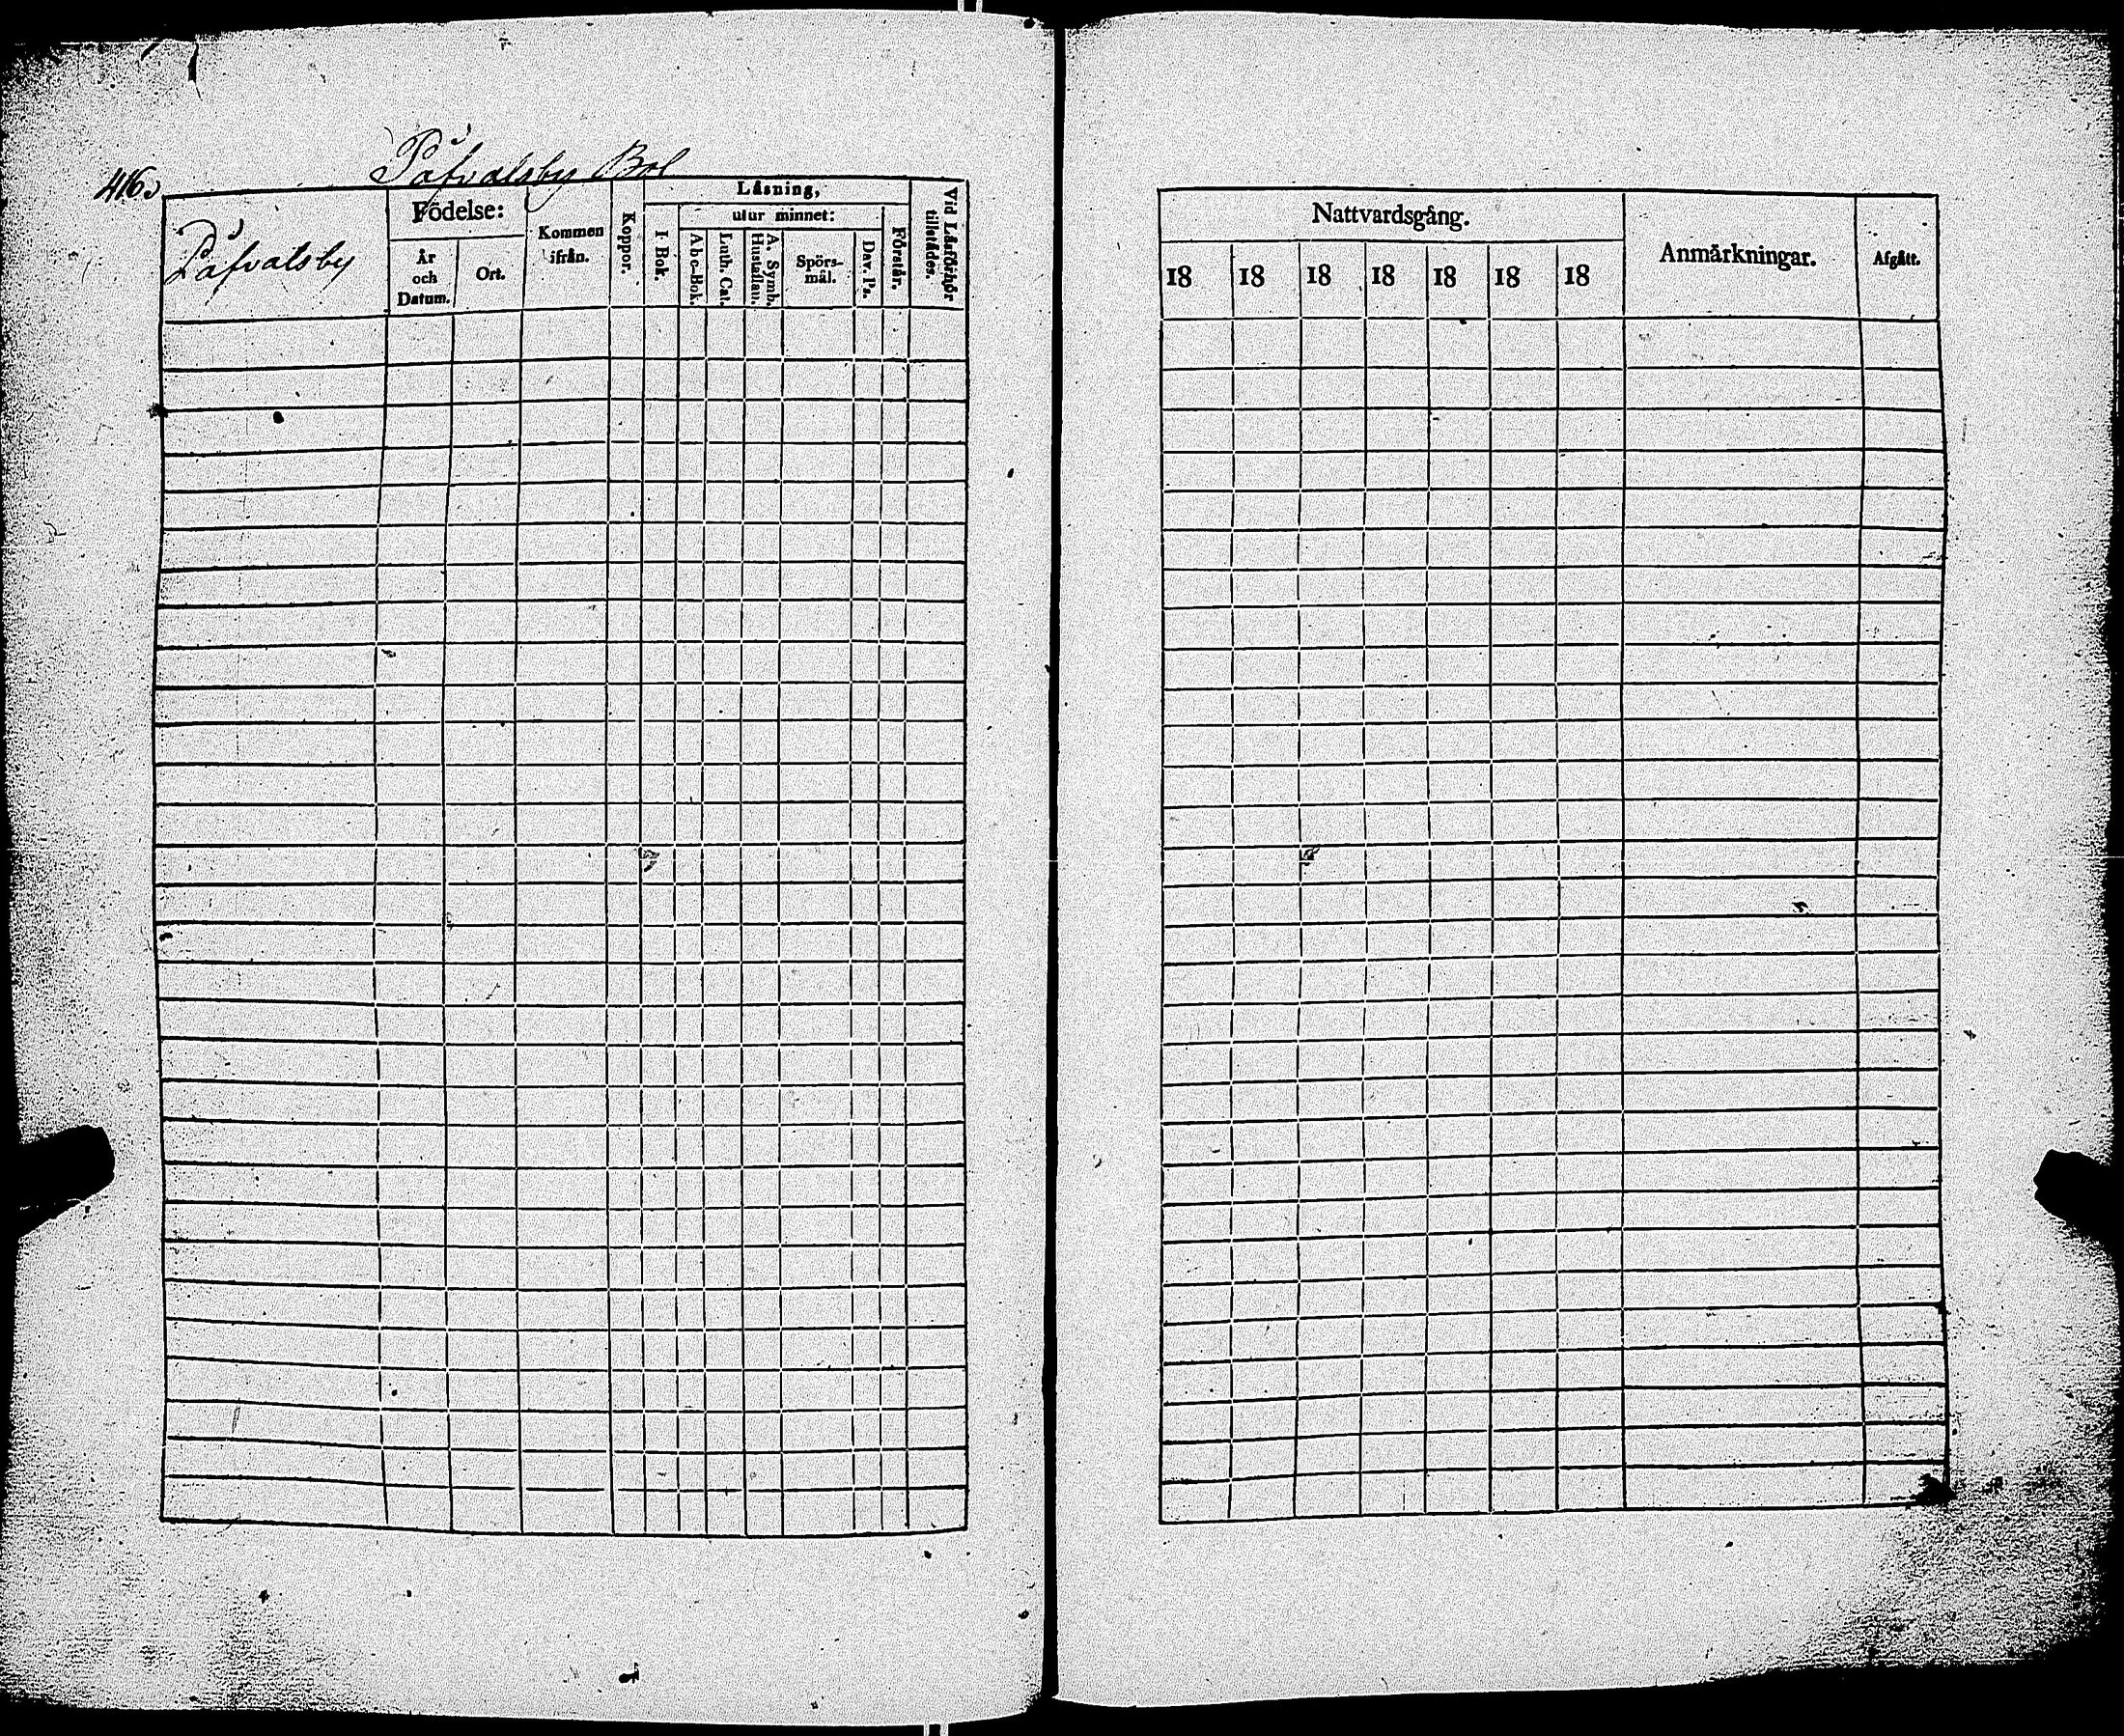 Påfvalsby Bol
416.
Påfvalsby
Födelse:
År
och
Datum.
Ort.
Kommen
ifrån.
Koppor.
Läsning,
I Bok.
utur minnet:
Abc-Bok.
Luth. Cat.
A. Symb.
Hustaflan.
Spörs-
mål.
Dav. Ps.
Förstår.
Vid Läsförhör
tillstädes.
Nattvardsgång.
18 18 18 18 18 18 18
Anmärkningar.
Afgått.